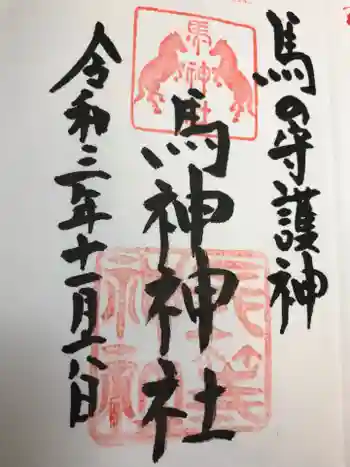 馬の守護神
馬神社
馬神神社
令和三年十一月六日